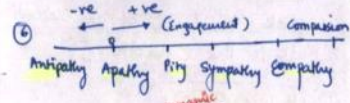 -ve +ve
⑥ (Engagement) Compassion
Antipathy Apathy Pity Sympathy Empathy